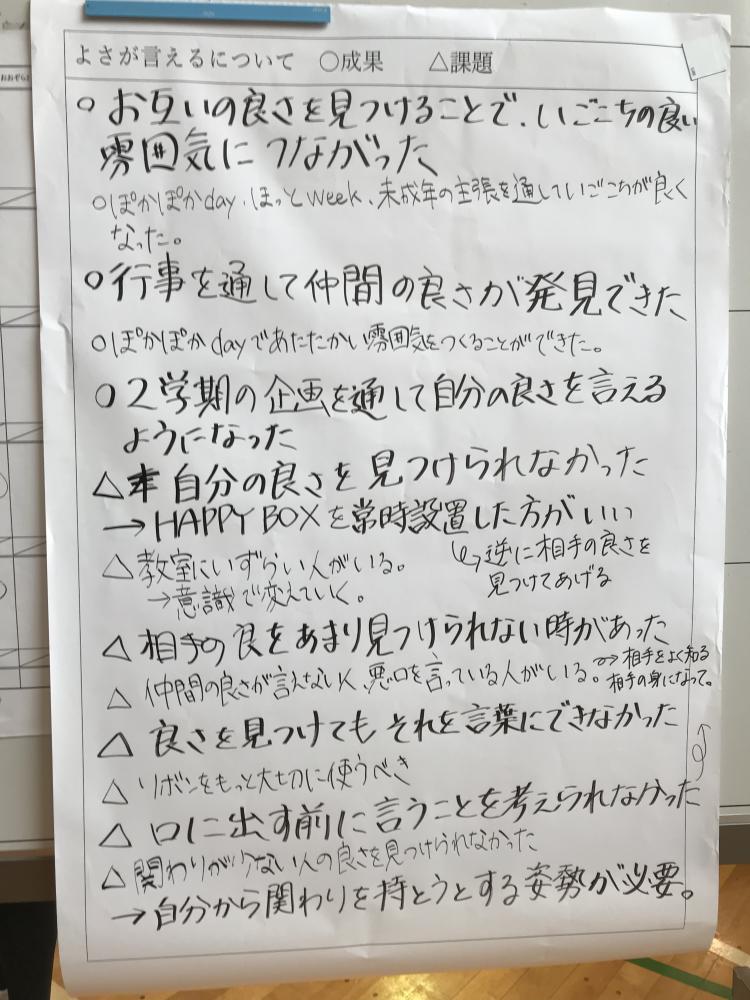 よさが言えるについて ○成果 △課題
○お互いの良さを見つけることで、いごこちの良い
雰囲気につながった
○ぽかぽかday、ほっとweek、未成年の主張を通していごこちが良く
なった。
○行事を通して仲間の良さが発見できた
○ぽかぽかdayであたたかい雰囲気をつくることができた。
○2学期の企画を通して自分の良さを言える
ようになった
△自分の良さを見つけられなかった
→HAPPY BOXを常時設置した方がいい
△教室にいずらい人がいる。
→意識で変えていく。
↪逆に相手の良さを
見つけてあげる
△相手の良をあまり見つけられない時があった
△仲間の良さが言えないし、悪口を言っている人がいる。⇒相手をよく知る
相手の身になって。
△良さを見つけてもそれを言葉にできなかった
△リボンをもっと大切に使うべき
△口に出す前に言うことを考えられなかった
△関わりが少ない人の良さを見つけられなかった
→自分から関わりを持とうとする姿勢が必要。